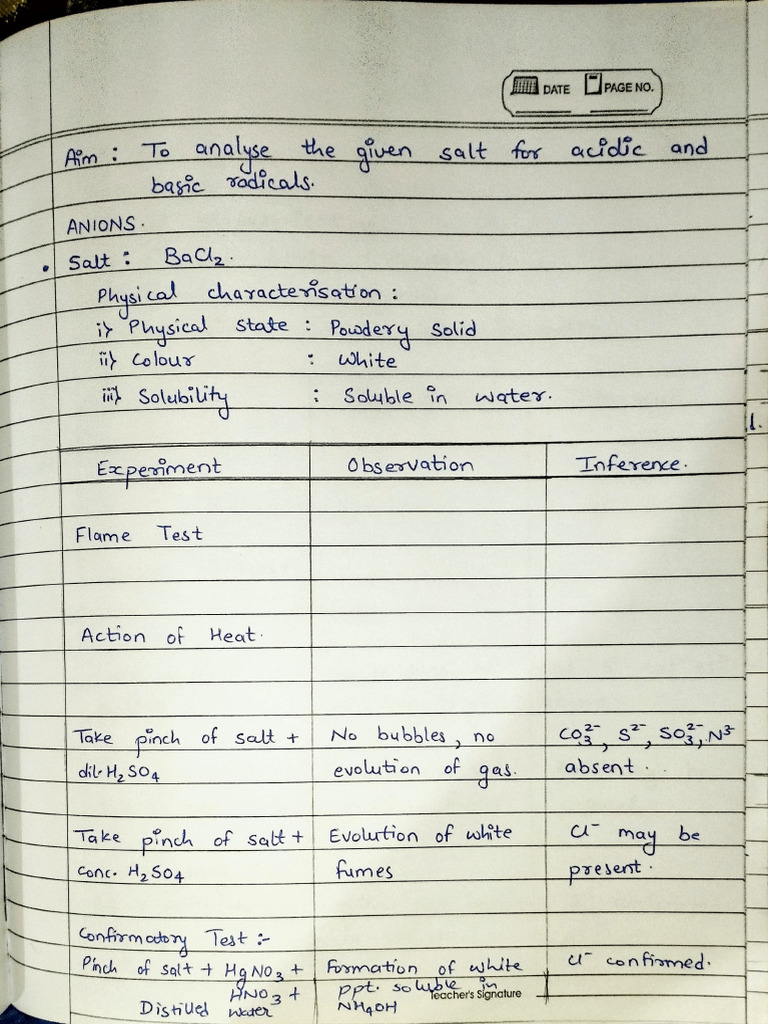 DATE PAGE NO.
Aim : To analyse the given salt for acidic and
basic radicals.
ANIONS.
• Salt : BaCl₂.
Physical characterisation :
i) Physical state : Powdery solid
ii) Colour : White
iii) Solubility : Soluble in water.
1.
Experiment Observation Inference.
Flame Test
Action of Heat.
Take pinch of salt + No bubbles, no CO₃²⁻, S²⁻, SO₃²⁻, N³⁻
dil. H₂SO₄ evolution of gas. absent.
Take pinch of salt + Evolution of white Cl⁻ may be
conc. H₂SO₄ fumes present.
Confirmatory Test :-
Pinch of salt + HgNO₃ + Formation of white Cl⁻ confirmed.
HNO₃ + ppt. soluble in
Distilled water NH₄OH
Teacher's Signature